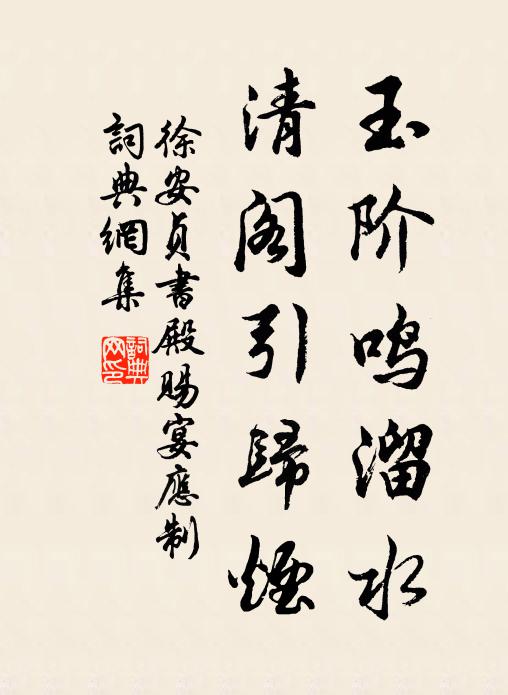 玉阶鸣溜水
清阁引歸煙
徐安贞書殿赐宴應制
詞典網集
詞典网印